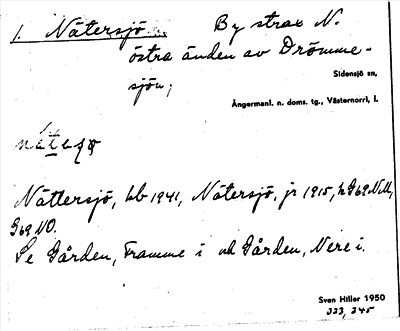 1. Nätersjö By strax N.
östra änden av Drömme-
sjön;
Sidensjö sn,
Ångermanl. n. doms. tg., Västernorrl, l.
Nättersjö, kb 1941, Nätersjö, jr 1915, hG69NV,
G69 NO.
Se Gården, Framme i och Gården, Nere i.
Sven Hiller 1950
323, 245